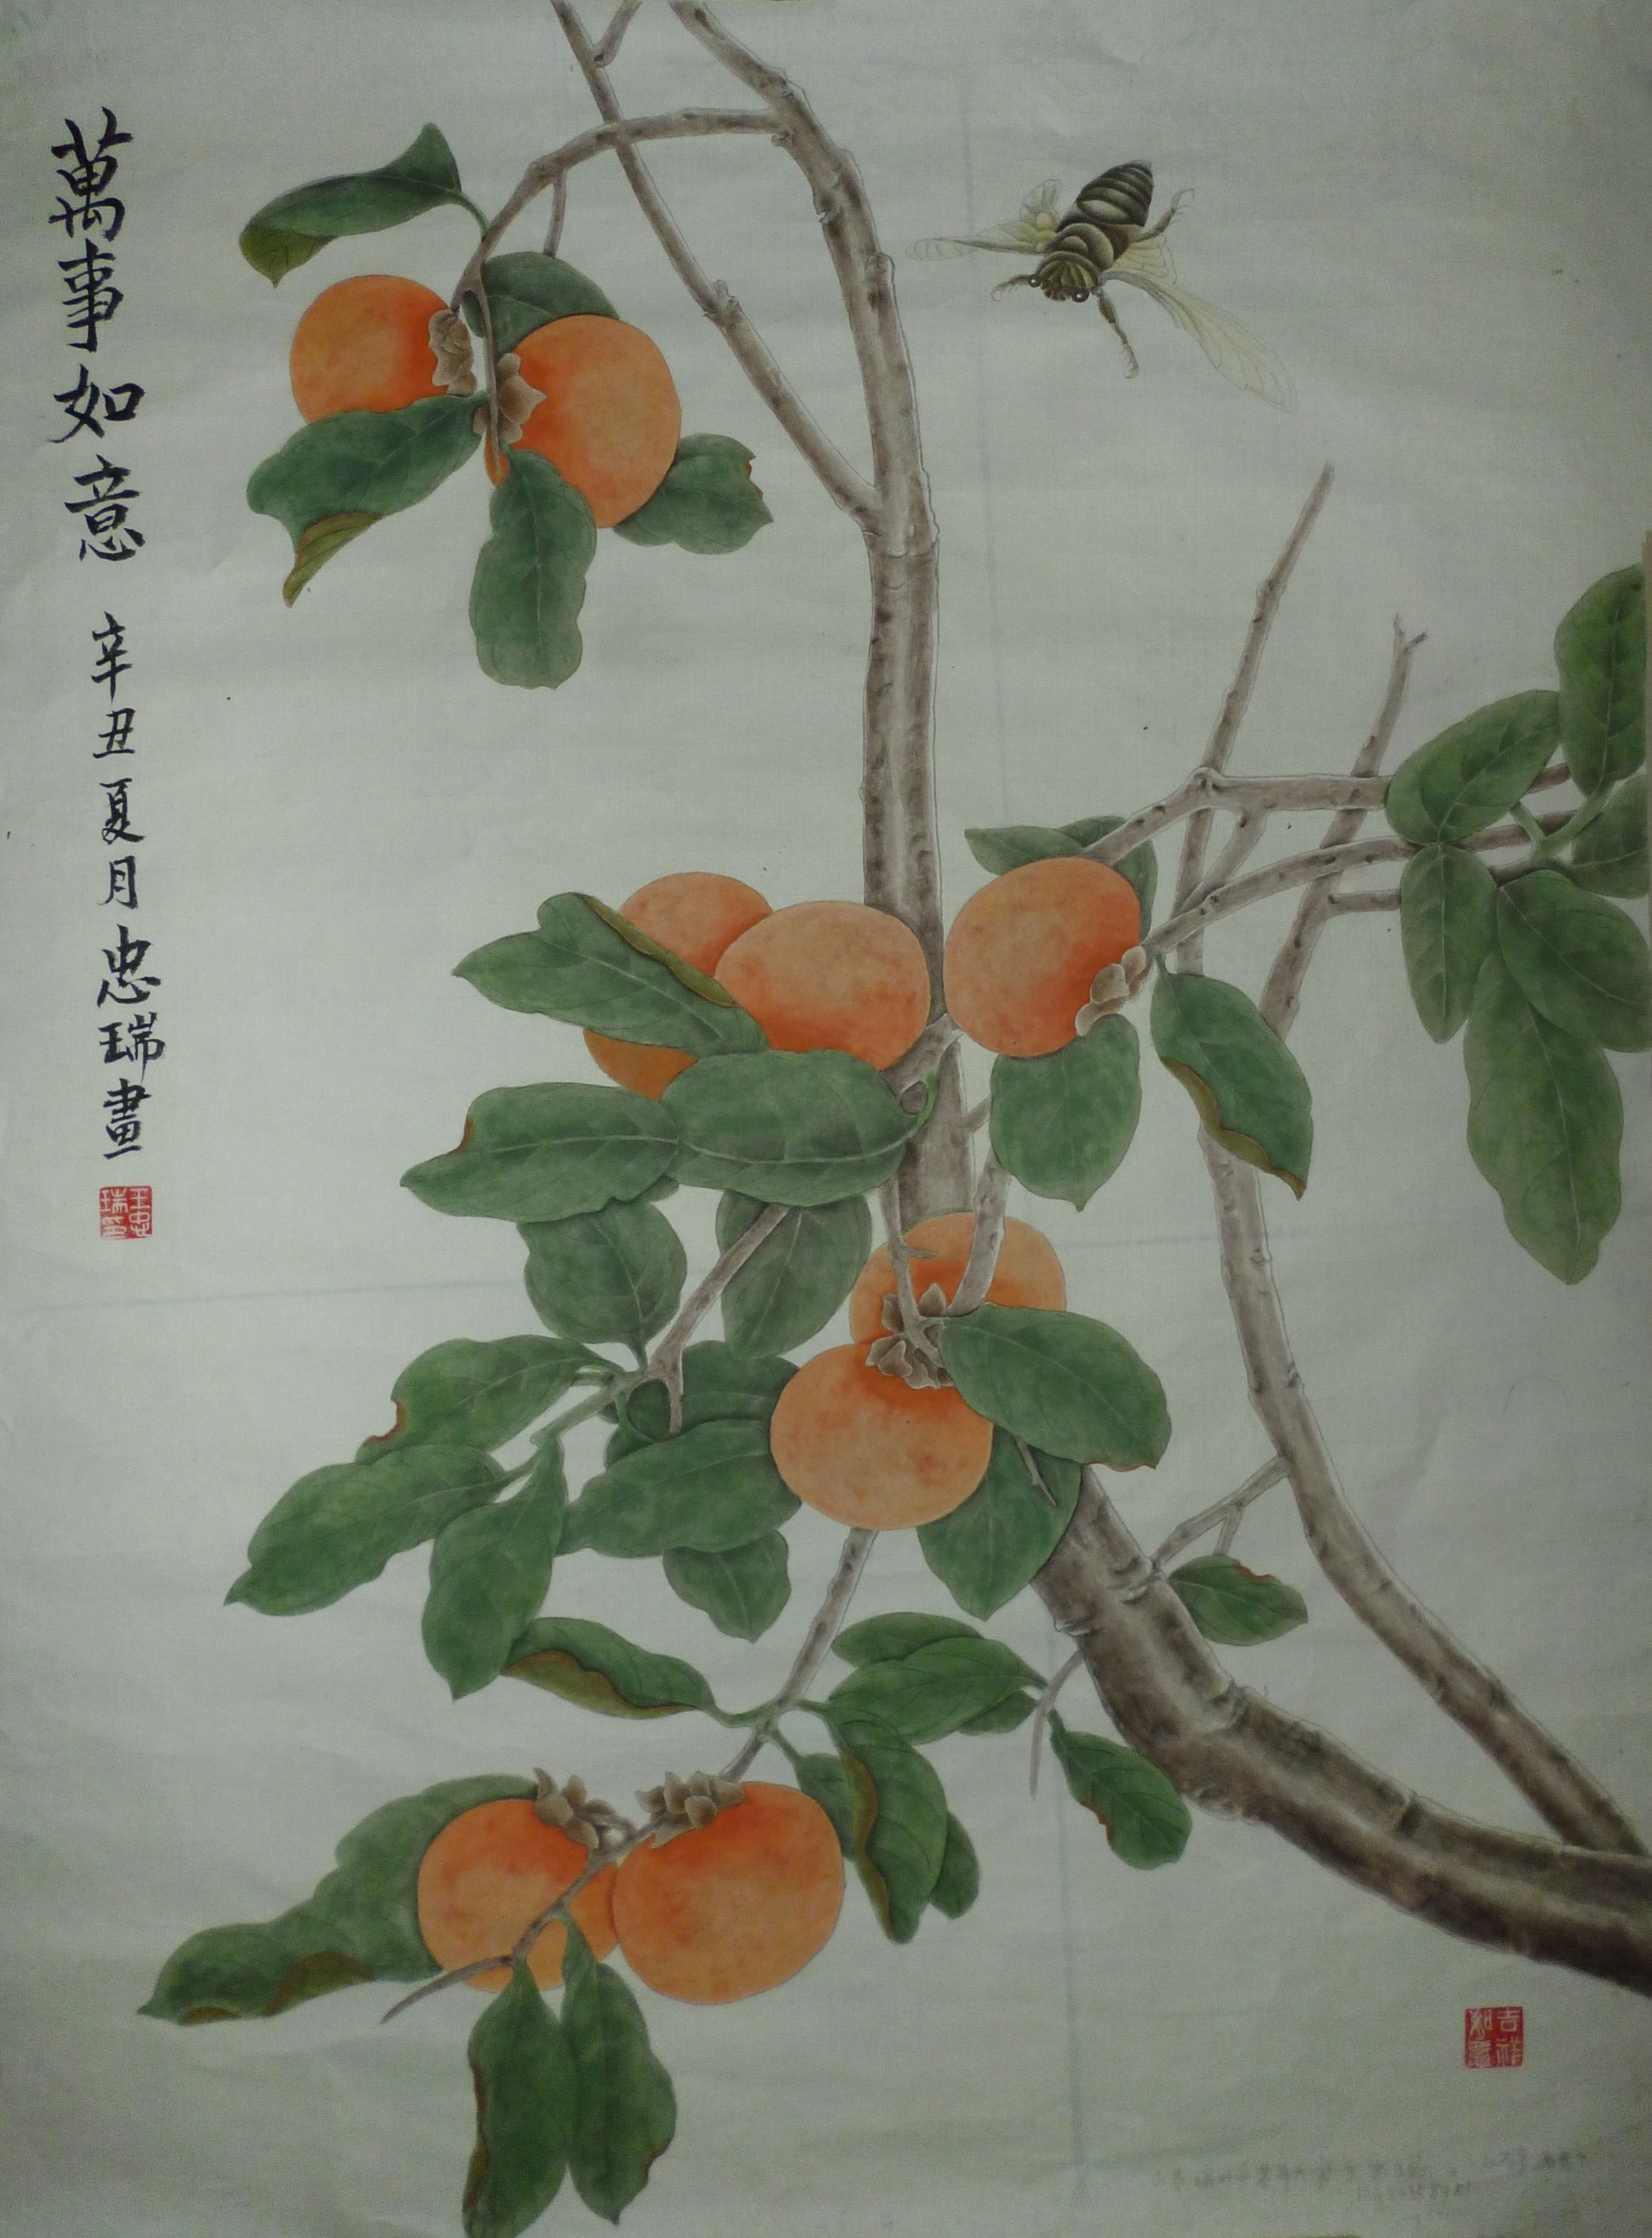 萬事如意 辛丑夏月忠瑞畫
王忠瑞印
吉祥如意